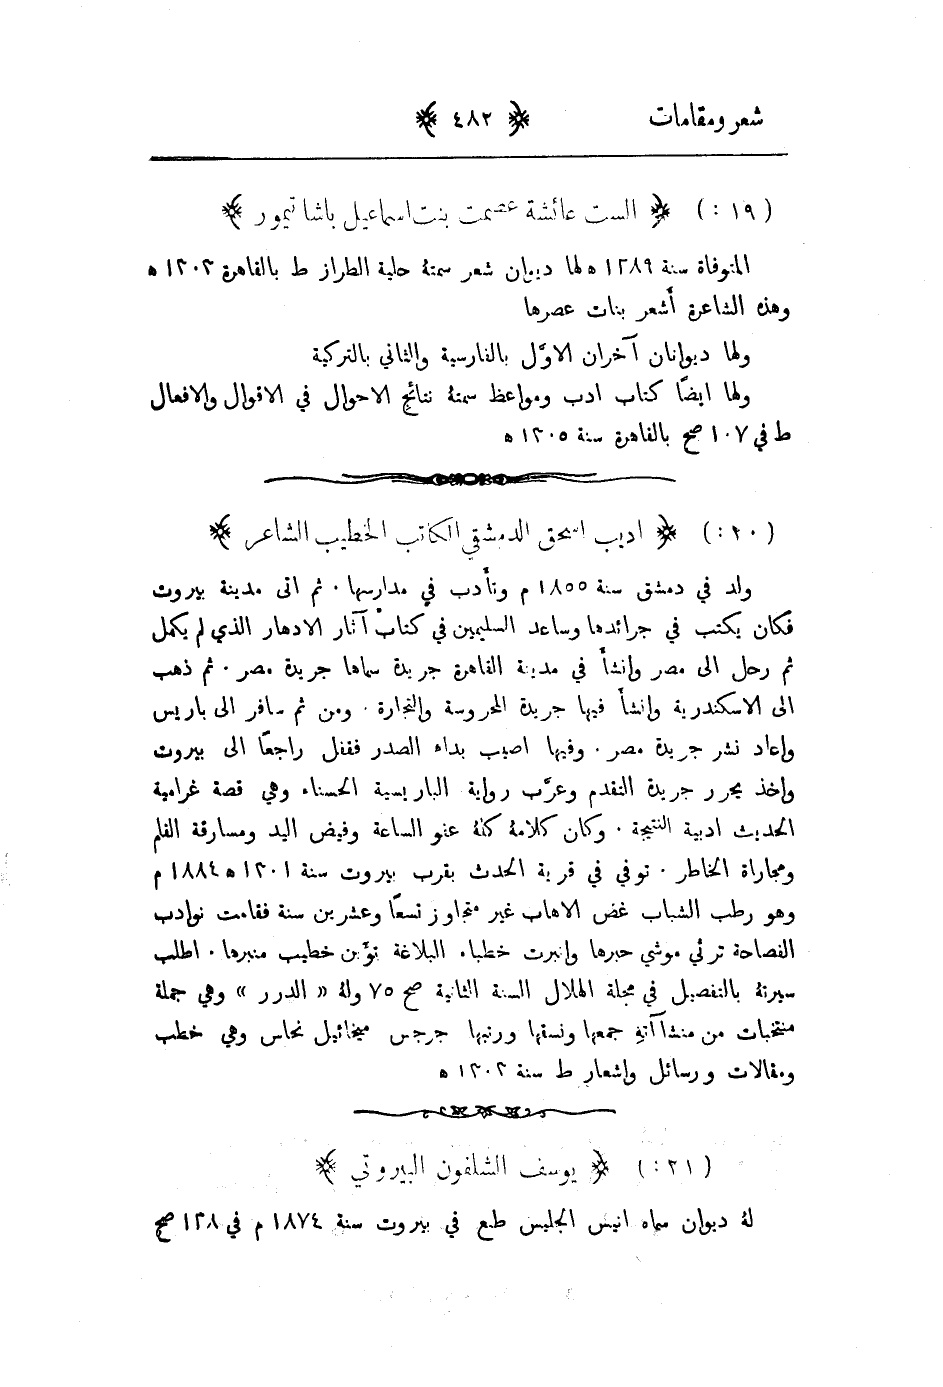 شعر ومقامات ﴿ ٤٨٢ ﴾
( ١٩ : ) ﴿ الست عائشة عصمت بنت اسماعيل باشا تيمور ﴾
المتوفاة سنة ١٢٨٩ ه لها ديوان شعر سمتهُ حلية الطراز ط بالقاهرة ١٣٠٣ ه
وهذه الشاعرة أشعر بنات عصرها
ولها ديوانان آخران الاوَّل بالفارسية والثاني بالتركية
ولها ايضًا كتاب ادب ومواعظ سمتهُ نتائج الاحوال في الاقوال والافعال
ط في ١٠٧ صح بالقاهرة سنة ١٣٠٥ ه
( ٢٠ : ) ﴿ اديب اسحق الدمشقي الكاتب الخطيب الشاعر ﴾
ولد في دمشق سنة ١٨٥٥ م وتأَدب في مدارسها . ثم اتى مدينة بيروت
فكان يكتب في جرائدها وساعد السليمين في كتاب آثار الادهار الذي لم يكمل
ثم رحل الى مصر وانشأَ في مدينة القاهرة جريدة سماها جريدة مصر . ثم ذهب
الى الاسكندرية وانشأَ فيها جريدة المحروسة والتجارة . ومن ثم سافر الى باريس
واعاد نشر جريدة مصر . وفيها اصيب بداء الصدر فقفل راجعًا الى بيروت
واخذ يحرر جريدة التقدم وعرَّب رواية الباريسية الحسناء وهي قصة غرامية
الحديث ادبية النتيجة . وكان كلامهُ كلهُ عفو الساعة وفيض اليد ومسارقة القلم
ومجاراة الخاطر . توفي في قرية الحدث بقرب بيروت سنة ١٣٠١ ه ١٨٨٤ م
وهو رطب الشباب غض الاهاب غير متجاوز تسعًا وعشرين سنة فقامت نوادب
الفصاحة ترثي موشي حبرها وانبرت خطباء البلاغة توَّبن خطيب منبرها . اطلب
سيرتهُ بالتفصيل في مجلة الهلال السنة الثانية صح ٧٥ ولهُ « الدرر » وهي جملة
منتخبات من منشاآتهِ جمعها ونسقها ورتبها جرجس ميخائيل نحاس وهي خطب
ومقالات ورسائل واشعار ط سنة ١٣٠٣ ه
( ٢١ : ) ﴿ يوسف الشلفون البيروتي ﴾
لهُ ديوان سماه انيس الجليس طبع في بيروت سنة ١٨٧٤ م في ١٣٨ صح